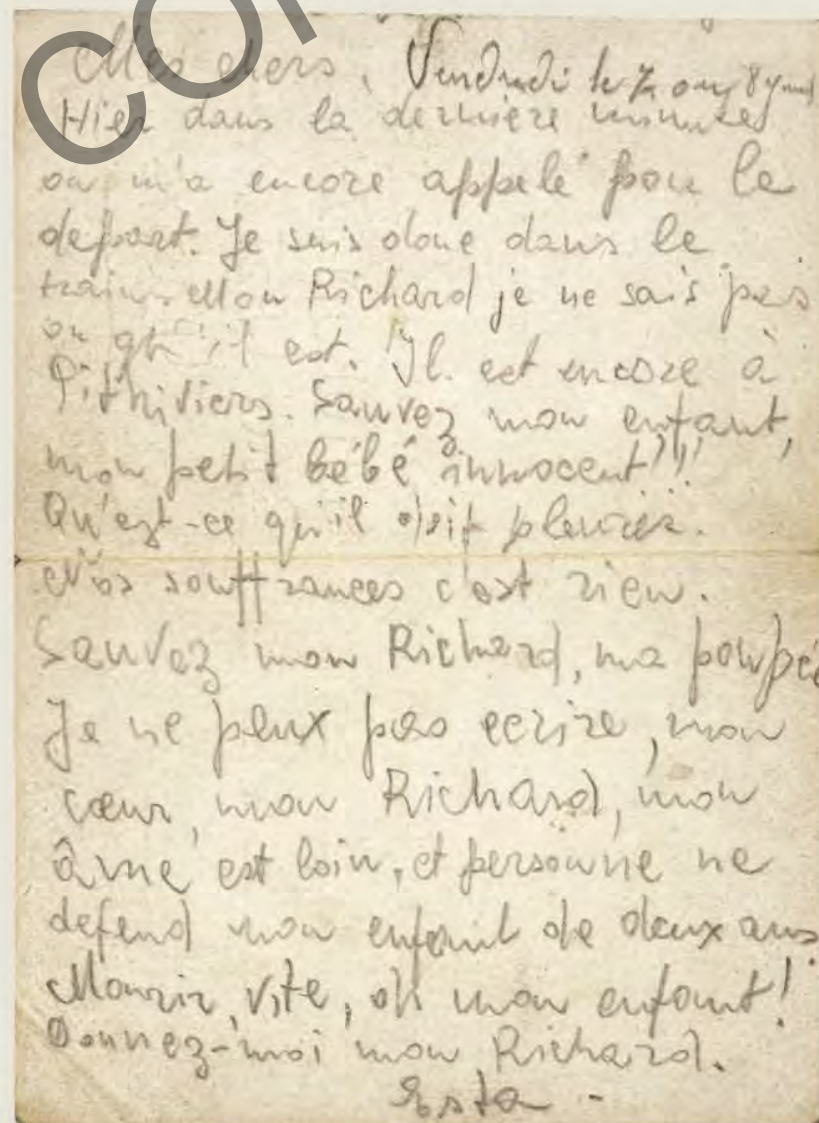 CO
Mes chers, Vendredi le 7 ou 8
Hier dans la dernière minute
on m'a encore appelé pour le
depart. Je suis donc dans le
train. Mon Richard je ne sais pas
ou qu'il est. Il est encore à
Pithiviers. Sauvez mon enfant,
mon petit bébé innocent!!!
Qu'est-ce qu'il doit pleurer.
Nos souffrances c'est rien.
Sauvez mon Richard, ma poupée
Je ne peux pas ecrire, mon
cœur, mon Richard, mon
âme est loin, et personne ne
defend mon enfant de deux ans.
Mourir, vite, oh mon enfant!
Donnez-moi mon Richard.
Esta -